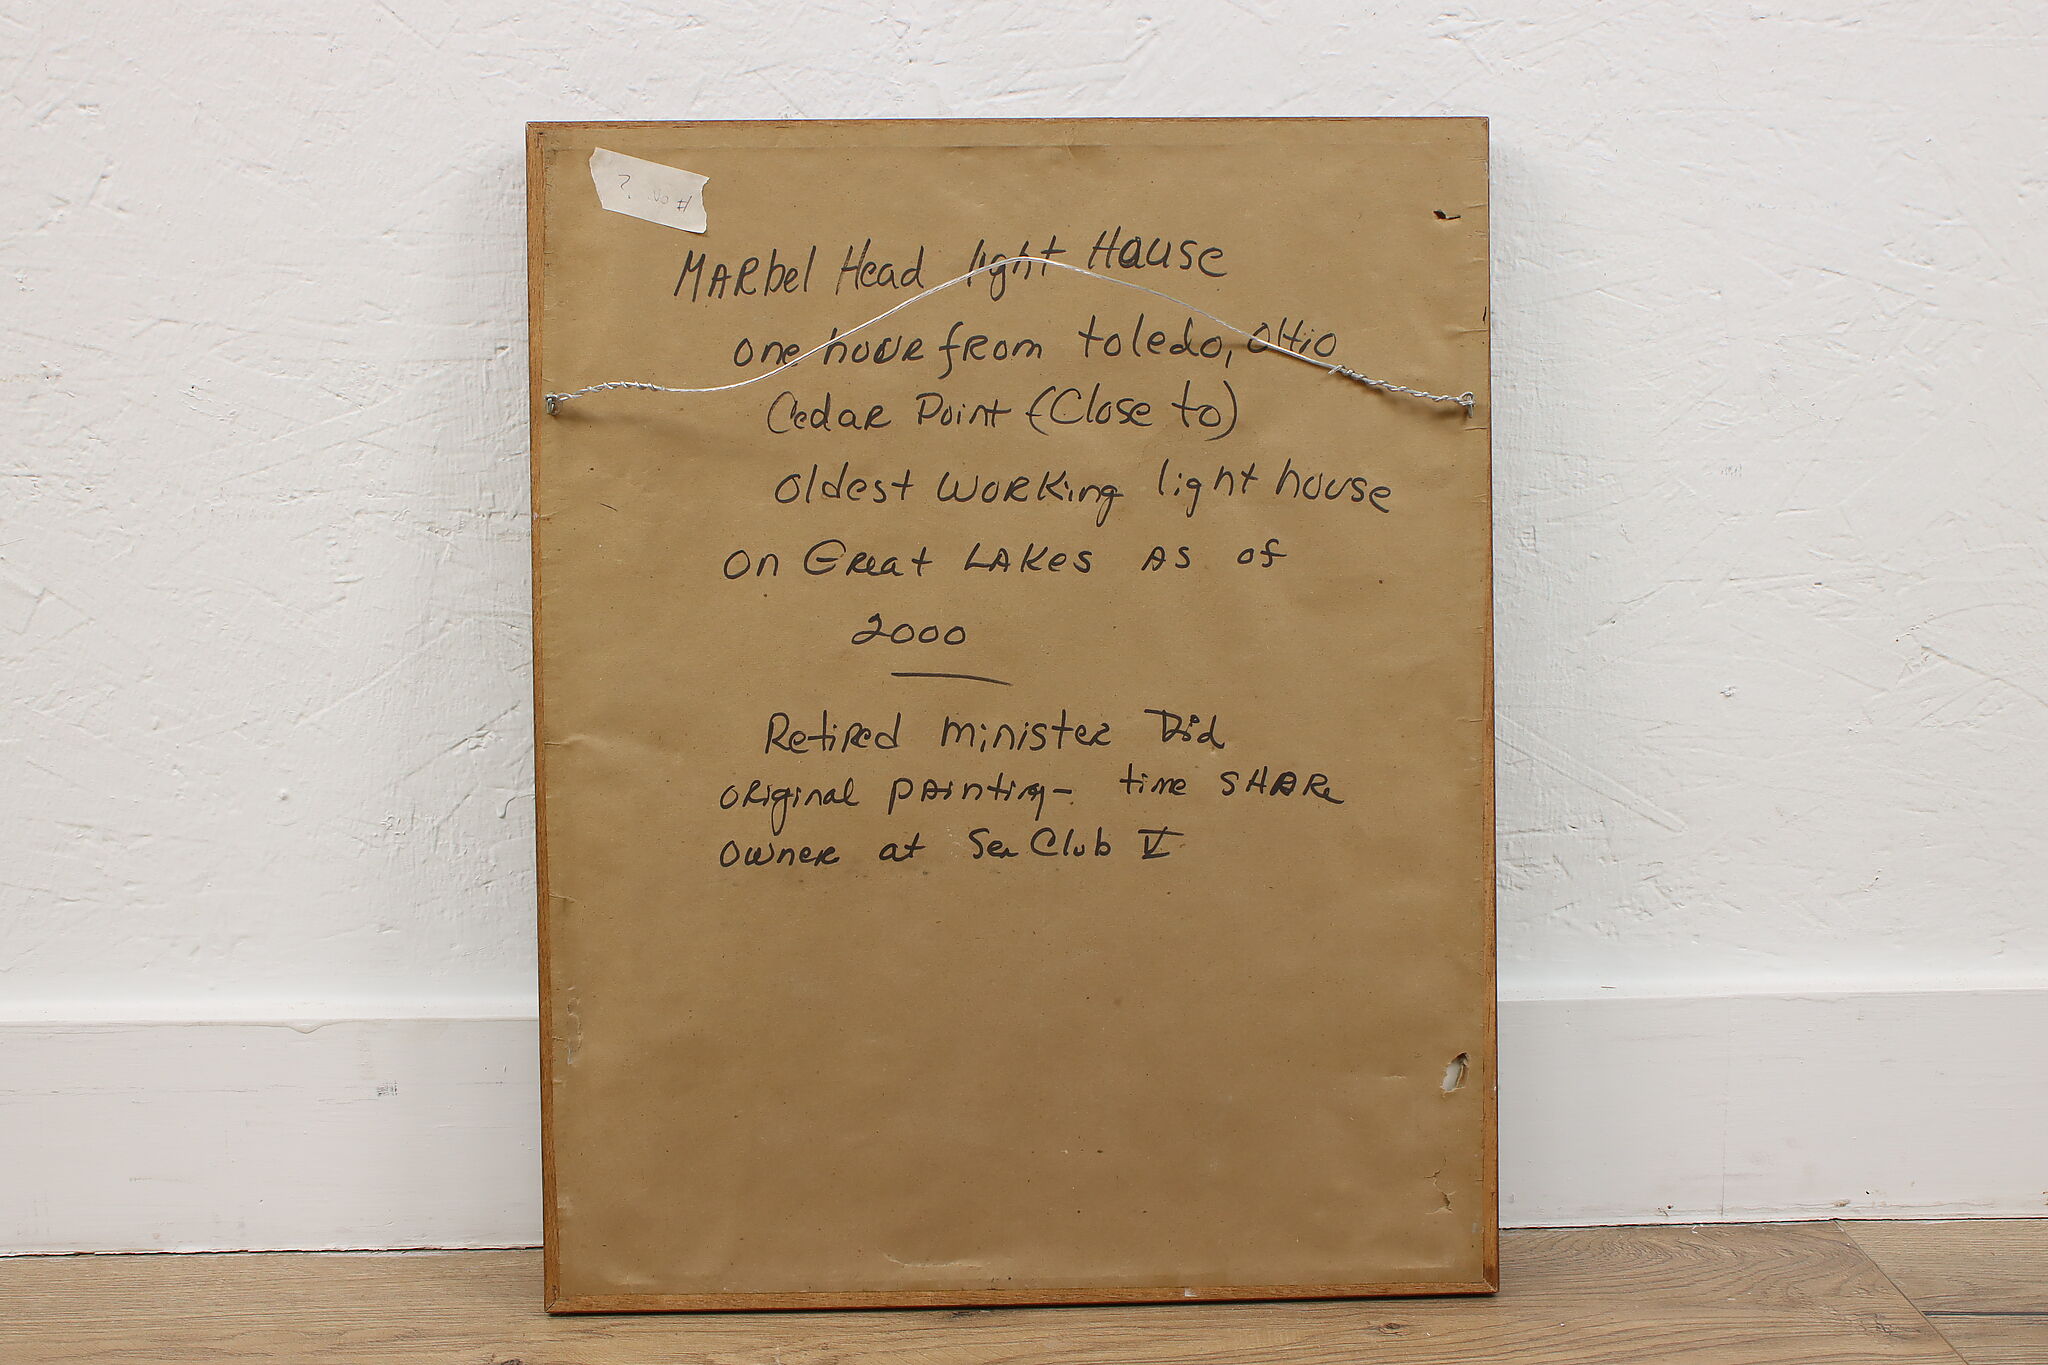 ? No #
MARbel Head light House
one hour from toledo, OHio
Cedar Point (Close to)
oldest working light house
on Great LAKes AS of
2000
Retired minister Did
original pAinting - time SHARe
owner at Sea Club V